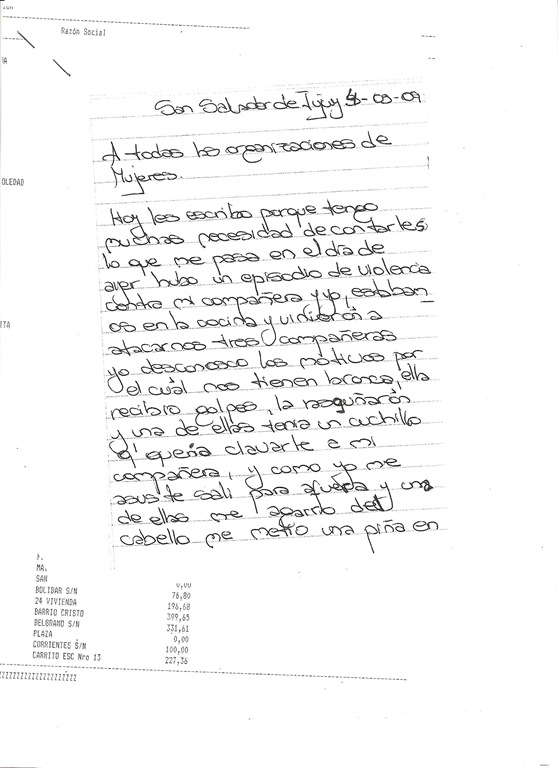 Razón Social
San Salvador de Jujuy -03-09
A todas las organizaciones de
Mujeres.
OLEDAD
Hoy les escribo porque tengo
muchas necesidad de contarles
lo que me pasa en el día de
ayer hubo un episodio de violencia
contra mi compañera y yo, estabban
ITA
os en la cocina y vinierón a
atacarnos tres compañeras
yo desconosco los motivos por
el cuál nos tienen bronca, ella
recibio golpes, la rasguñarón
y una de ellas tenia un cuchillo
q' queria clavarle a mi
compañera, y como yo me
asuste sali para afuera y una
de ellas me agarro del
cabello me metio una piña en
F.
MA.
SAN 0,00
BOLIBAR S/N 76,80
24 VIVIENDA 196,68
BARRIO CRISTO 399,65
BELGRANO S/N 331,61
PLAZA 0,00
CORRIENTES S/N 100,00
CARRITO ESC Nro 13 227,36
ZZZZZZZZZZZZZZZZZZZZZZ